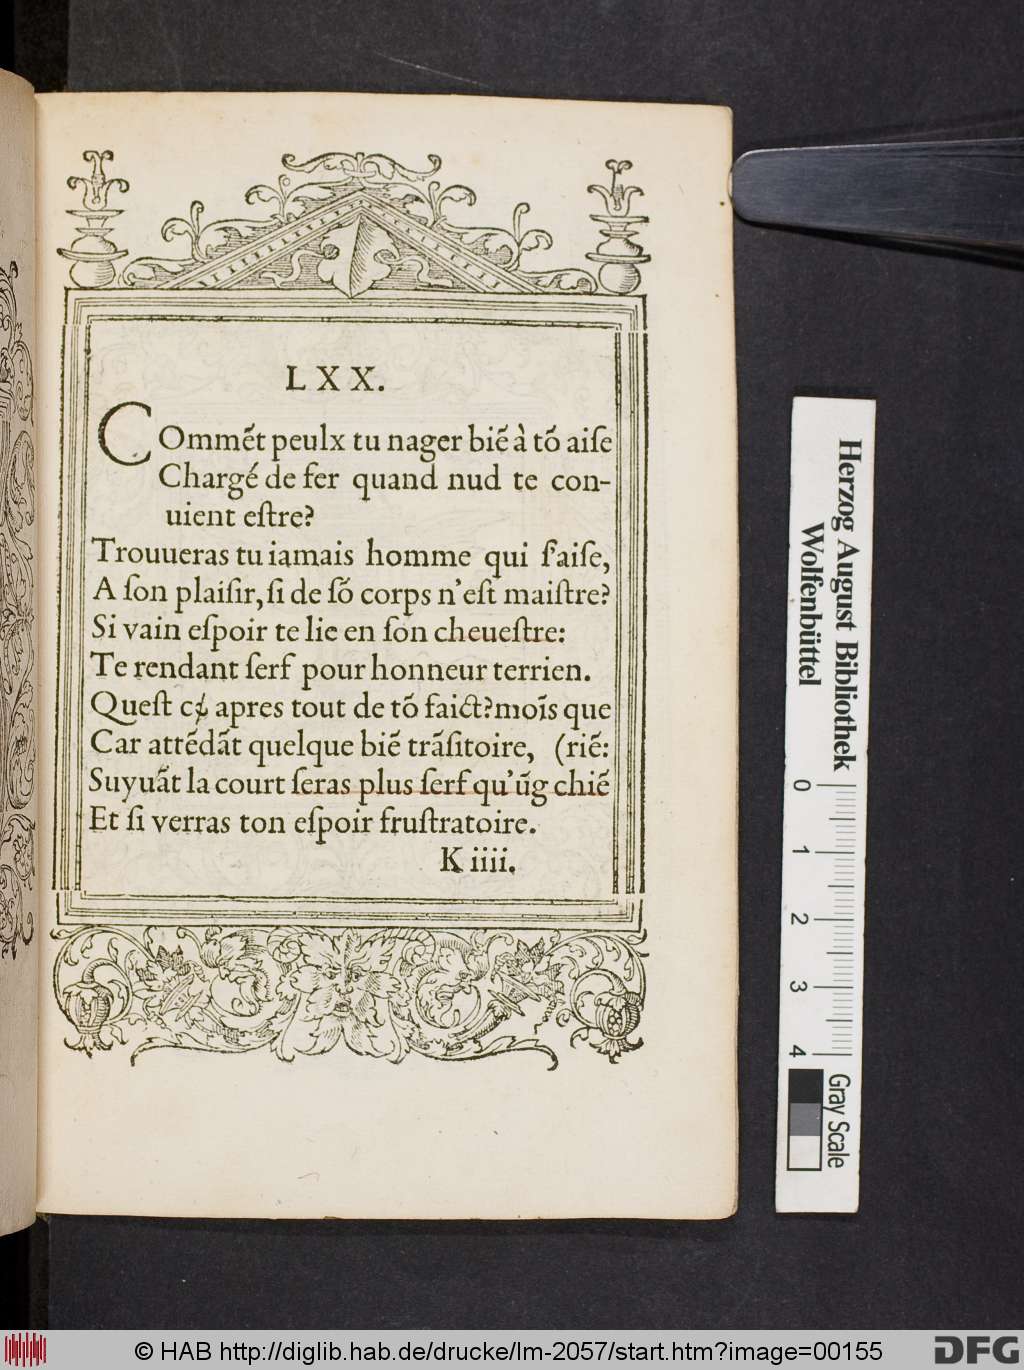 LXX.
COmmẽt peulx tu nager biẽ à tõ aiſe
Chargé de fer quand nud te con-
uient eſtre?
Trouueras tu iamais homme qui ſ'aiſe,
A ſon plaiſir, ſi de ſõ corps n'eſt maiſtre?
Si vain eſpoir te lie en ſon cheueſtre:
Te rendant ſerf pour honneur terrien.
Queſt apres tout de tõ faict? moĩs que
Car attẽdãt quelque biẽ trãſitoire, (riẽ:
Suyuãt la court ſeras plus ſerf qu'ũg chiẽ
Et ſi verras ton eſpoir fruſtratoire.
K iiii.
Herzog August Bibliothek
Wolfenbüttel
0 1 2 3 4
Gray Scale
© HAB http://diglib.hab.de/drucke/lm-2057/start.htm?image=00155
DFG